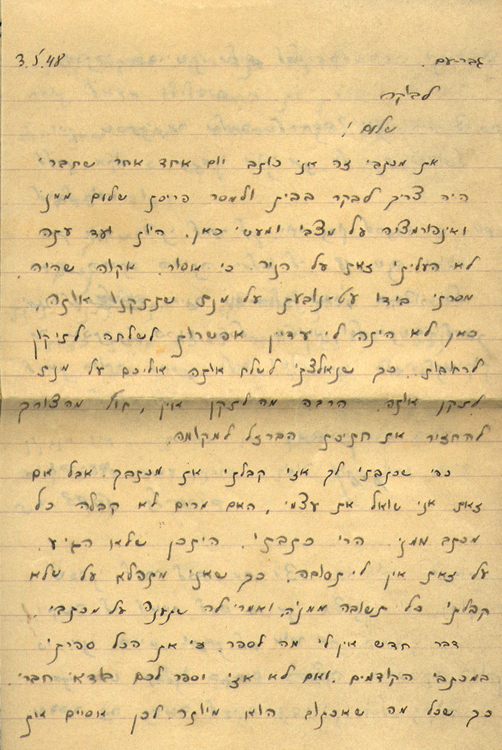 גברעם. 3.5.48
לביקה
שלום!
את מכתבי זה אני כותב יום אחד אחר שחברי
היה צריך לבקר בבית ולמסר פריסת שלום ממני
ואינפורמציה על מצבי ומעשי כאן. היות ועד עתה
לא העליתי זאת על הניר כי אסור. אקוה שהיה
מסרתי בידו עט נובעת על מנת שתתקנו אותה,
כאן לא היתה לי עדיין אפשרות לשלחה לתיקון
לרחובות. כך שנאלצתי לשלח אותה אליכם על מנת
לתקן אותה. הרבה מה לתקן אין, חוץ מהצורך
להחזיר את חתיכת הברזל למקומה.
כדי שכתבתי לך אזי קבלתי את מכתבך אבל אם
זאת אני שואל את עצמי, האם מרים לא קבלה כל
מכתב ממני. הרי כתבתי. היתכן שלא הגיע.
על זאת אין לי תשובה. כך שאני מתפלא על שלא
קבלתי כל תשובה ממנה, ואמרי לה שתענה על מכתבי.
דבר חדש אין לי מה לספר. כי את הכל ספרתי
במכתבי הקודמים. ואם לא אזי יספר לכם בודאי חברי.
כך שכל מה שאכתוב הוא מיותר. לכן אסיים את